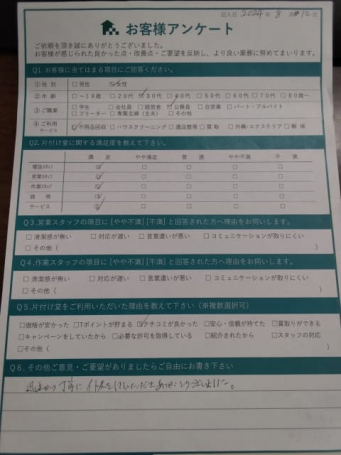 記入日 2024年 8月12日
お客様アンケート
ご依頼を頂き誠にありがとうございました。
お客様が感じられた良かった点・改善点・ご要望を反映し、より良い業務に努めてまいります。
Q1. お客様に当てはまる項目にご回答ください。
①性 別 □男性 ☑女性
②年 齢 □~19歳 □20代 ☑30代 □40代 □50代 □60代 □70代 □80歳~
③ご職業 □学生 □会社員 □経営者 □公務員 □自営業 □パート・アルバイト
□フリーター □専職主婦(主夫) □その他
④ご利用サービス ☑不用品回収 □ハウスクリーニング □遺品整理 □買取 □外構・エクステリア □解体
Q2. 片付け堂に関する満足度を教えて下さい。
満足 やや満足 普通 やや不満 不満
電話受付
営業受付
作業受付
価格
サービス
Q3. 営業スタッフの項目に[やや不満][不満]と回答された方へ理由をお伺いします。
□清潔感が無い □対応が遅い □言葉遣いが悪い □コミュニケーションが取りにくい
□その他( )
Q4. 作業スタッフの項目に[やや不満][不満]と回答された方へ理由をお伺いします。
□清潔感が無い □対応が遅い □言葉遣いが悪い □コミュニケーションが取りにくい
□その他( )
Q5. 片付け堂をご利用いただいた理由を教えて下さい(※複数選択可)
□価格が安かった □Tポイントが貯まる ☑クチコミが良かった □安心・信頼が持てた □買取りができる
□キャンペーンをしていたから □必要な許可を取得している □紹介されたから □スタッフの対応
□その他( )
Q6. その他ご意見・ご要望がありましたらご自由にお書き下さい